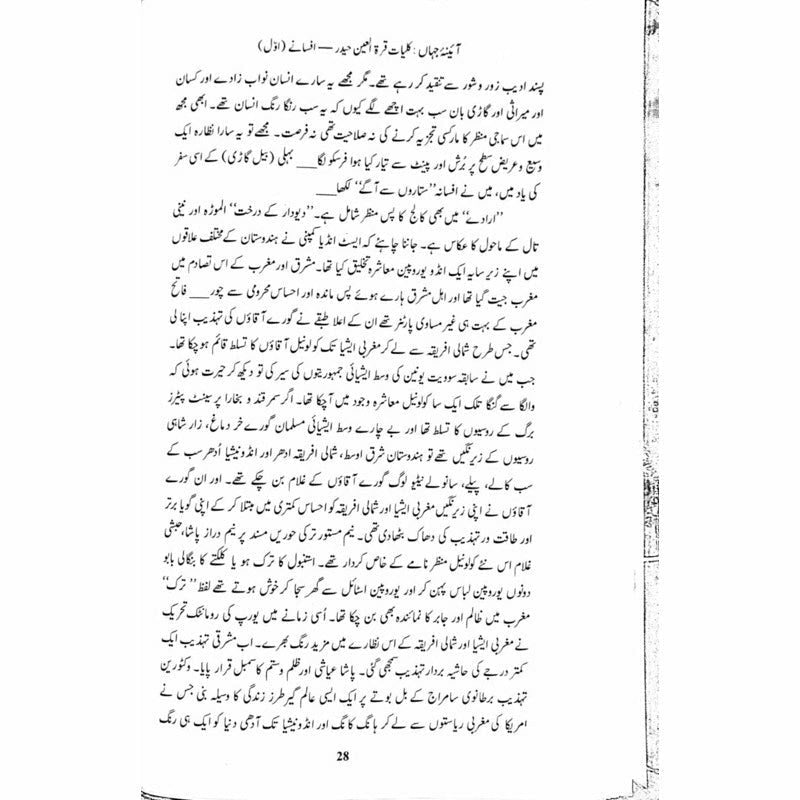 آئینۂ جہاں : کلیات قرۃ العین حیدر — افسانے (اوّل)
پسند ادیب زور و شور سے تنقید کر رہے تھے۔ مگر مجھے یہ سارے انسان نواب زادے اور کسان
اور میراثی اور گاڑی بان سب بہت اچھے لگے کیوں کہ یہ سب رنگا رنگ انسان تھے۔ ابھی مجھ
میں اس سماجی منظر کا مارکسی تجزیہ کرنے کی نہ صلاحیت تھی نہ فرصت۔ مجھے تو یہ سارا نظارہ ایک
وسیع و عریض سطح پر بُرش اور پینٹ سے تیار کیا ہوا فرسکو لگا__ بہلی (بیل گاڑی) کے اسی سفر
کی یاد میں، میں نے افسانہ ''ستاروں سے آگے'' لکھا__
''ارادے'' میں بھی کالج کا پس منظر شامل ہے۔ ''دیودار کے درخت'' الموڑہ اور نینی
تال کے ماحول کا عکاس ہے۔ جاننا چاہئے کہ ایسٹ انڈیا کمپنی نے ہندوستان کے مختلف علاقوں
میں اپنے زیر سایہ ایک انڈو یوروپین معاشرہ تخلیق کیا تھا۔ مشرق اور مغرب کے اس تصادم میں
مغرب جیت گیا تھا اور اہل مشرق ہارے ہوئے پس ماندہ اور احساس محرومی سے چور__ فاتح
مغرب کے بہت ہی غیر مساوی پارٹنر تھے ان کے اعلا طبقے نے گورے آقاؤں کی تہذیب اپنا لی
تھی۔ جس طرح شمالی افریقہ سے لے کر مغربی ایشیا تک کولونیل آقاؤں کا تسلط قائم ہو چکا تھا۔
جب میں نے سابقہ سوویت یونین کی وسط ایشیائی جمہوریتوں کی سیر کی تو دیکھ کر حیرت ہوئی کہ
والگا سے گنگا تلک ایک سا کولونیل معاشرہ وجود میں آچکا تھا۔ اگر سمرقند و بخارا پر سینٹ پیٹرز
برگ کے روسیوں کا تسلط تھا اور بے چارے وسط ایشیائی مسلمان گورے خر دماغ، زار شاہی
روسیوں کے زیر نگیں تھے تو ہندوستان شرق اوسط، شمالی افریقہ ادھر اور انڈونیشیا اُدھر سب کے
سب کالے، پیلے، سانولے نیٹیو لوگ گورے آقاؤں کے غلام بن چکے تھے۔ اور ان گورے
آقاؤں نے اپنی زیر نگیں مغربی ایشیا اور شمالی افریقہ کو احساس کمتری میں مبتلا کر کے اپنی گویا برتر
اور طاقت ور تہذیب کی دھاک بٹھا دی تھی۔ نیم مستور ترکی حوریں مسند پر نیم دراز پاشا، حبشی
غلام اس نئے کولونیل منظر نامے کے خاص کردار تھے۔ استنبول کا ترک ہو یا کلکتے کا بنگالی بابو
دونوں یوروپین لباس پہن کر اور یوروپین اسٹائل سے گھر سجا کر خوش ہوتے تھے لفظ ''ترک''
مغرب میں ظالم اور جابر کا نمائندہ بھی بن چکا تھا۔ اُسی زمانے میں یورپ کی رومانٹک تحریک
نے مغربی ایشیا اور شمالی افریقہ کے اس نظارے میں مزید رنگ بھرے۔ اب مشرقی تہذیب ایک
کمتر درجے کی حاشیہ بردار تہذیب سمجھی گئی۔ پاشا عیاشی اور ظلم و ستم کا سمبل قرار پایا۔ وکٹورین
تہذیب برطانوی سامراج کے بل بوتے پر ایک ایسی عالم گیر طرز زندگی کا وسیلہ بنی جس نے
امریکا کی مغربی ریاستوں سے لے کر ہانگ کانگ اور انڈونیشیا تک آدھی دنیا کو ایک ہی رنگ
28